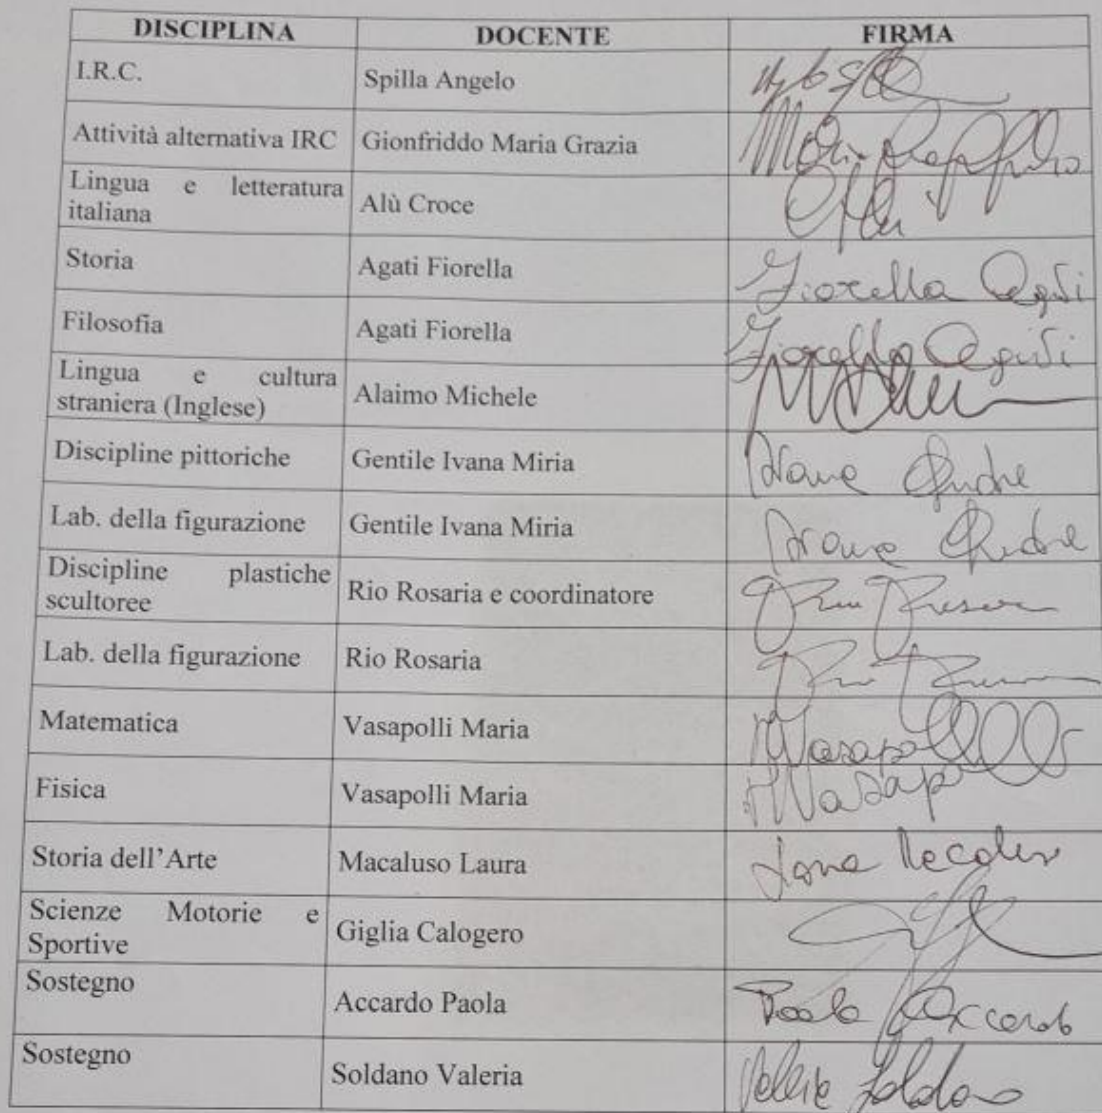 DISCIPLINA DOCENTE FIRMA
I.R.C. Spilla Angelo
Attività alternativa IRC Gionfriddo Maria Grazia
Lingua e letteratura
italiana Alù Croce
Storia Agati Fiorella Fiorella Agati
Filosofia Agati Fiorella Fiorella Agati
Lingua e cultura
straniera (Inglese) Alaimo Michele
Discipline pittoriche Gentile Ivana Miria Ivana Gentile
Lab. della figurazione Gentile Ivana Miria Ivana Gentile
Discipline plastiche
scultoree Rio Rosaria e coordinatore
Lab. della figurazione Rio Rosaria
Matematica Vasapolli Maria MVasapolli
Fisica Vasapolli Maria MVasapolli
Storia dell'Arte Macaluso Laura
Scienze Motorie e
Sportive Giglia Calogero
Sostegno Accardo Paola Paola Accardo
Sostegno Soldano Valeria Valeria Soldano